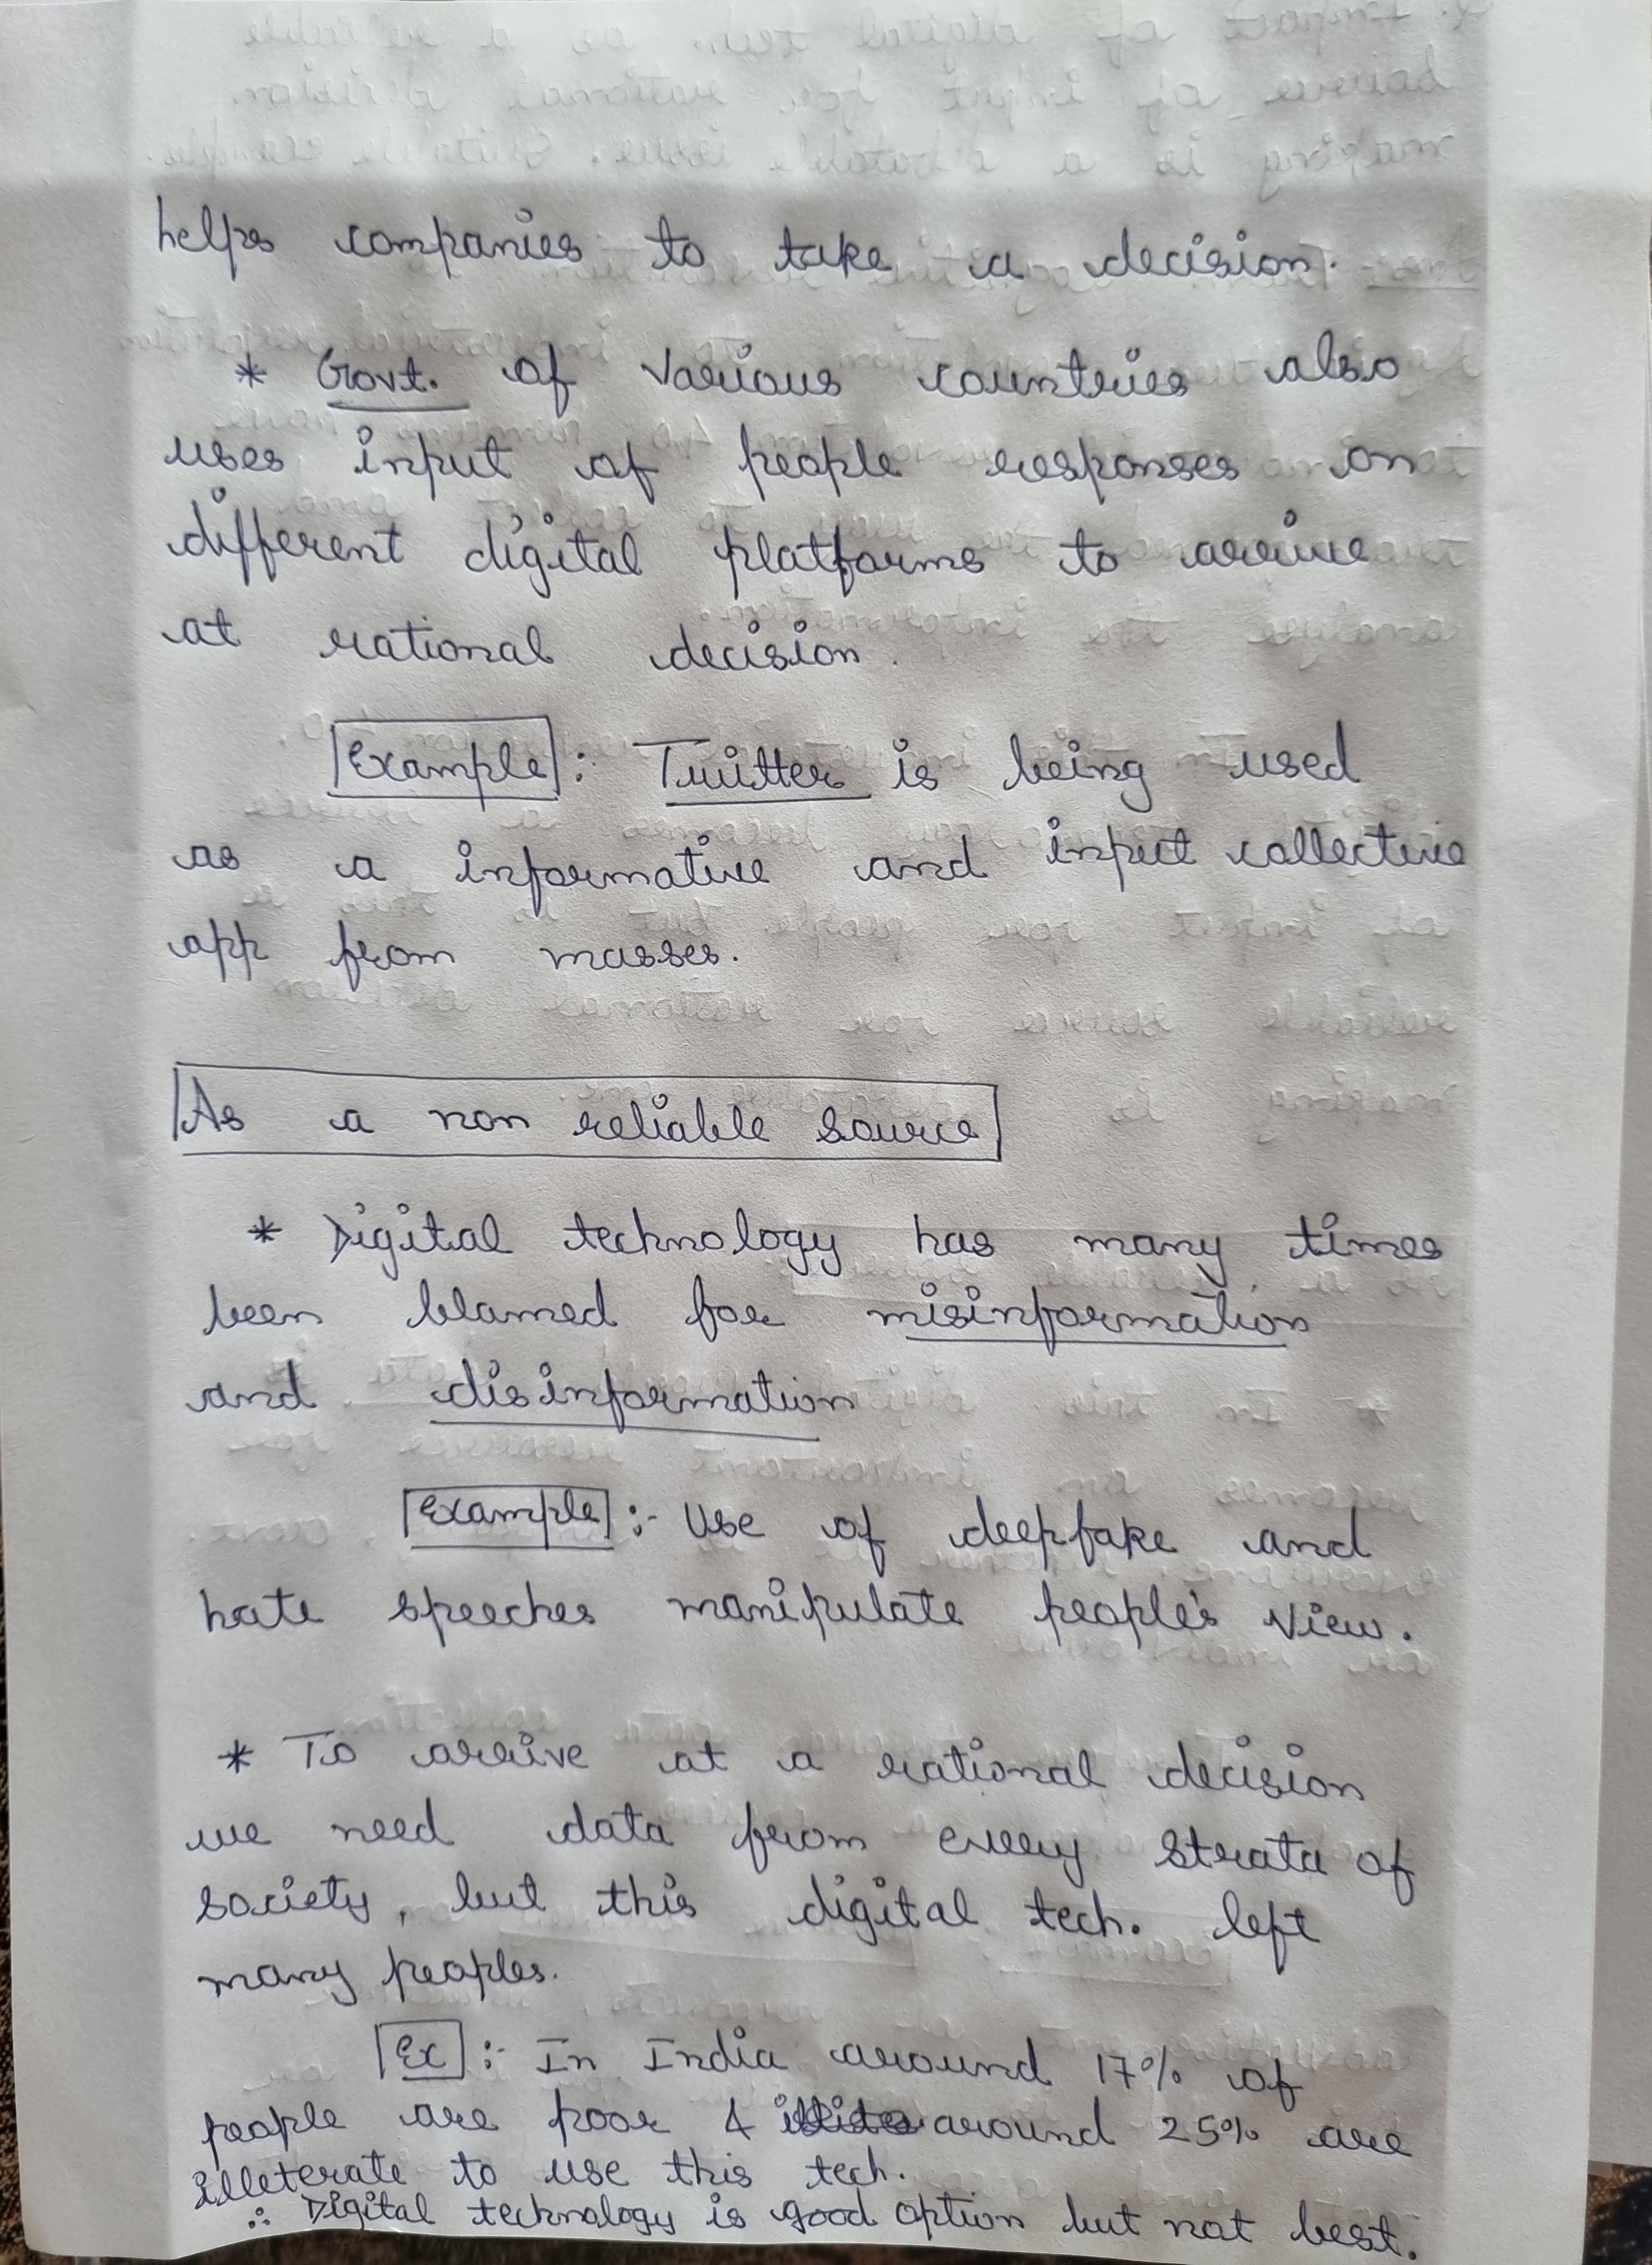 helps companies to take a decision.
* Govt. of various countries also
uses input of people responses on
different digital platforms to arrive
at rational decision.
Example : Twitter is being used
as a informative and input collective
app from masses.
As a non reliable source
* Digital technology has many times
been blamed for misinformation
and disinformation
Example :- Use of deepfake and
hate speeches manipulate people's view.
* To arrive at a rational decision
we need data from every strata of
society, but this digital tech. left
many peoples.
Ex :- In India around 17% of
people are poor & around 25% are
illeterate to use this tech.
∴ Digital technology is good option but not best.